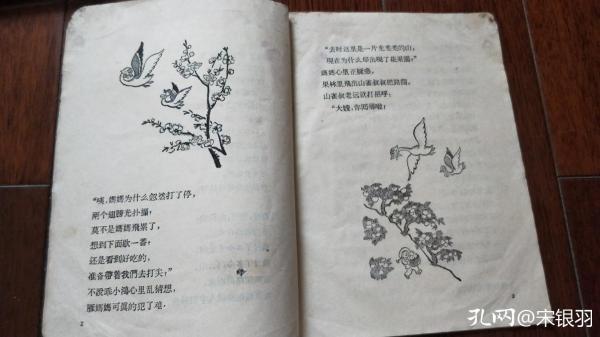 “咦，媽媽为什么忽然打了停，
两个翅膀光扑搧；
莫不是媽媽飛累了，
想到下面歇一番；
还是看到好吃的，
准备帶着我們去打尖；”
不說乖小鴻心里乱猜想，
雁媽媽可真的犯了难。
2
“去时这里是一片光秃秃的山，
现在为什么却出現了花果園？”
媽媽心里正
果林里飛出山雀叔叔把路
山雀叔叔老远就打招呼：
“大嫂，你 啦；
3
孔网@宋银羽